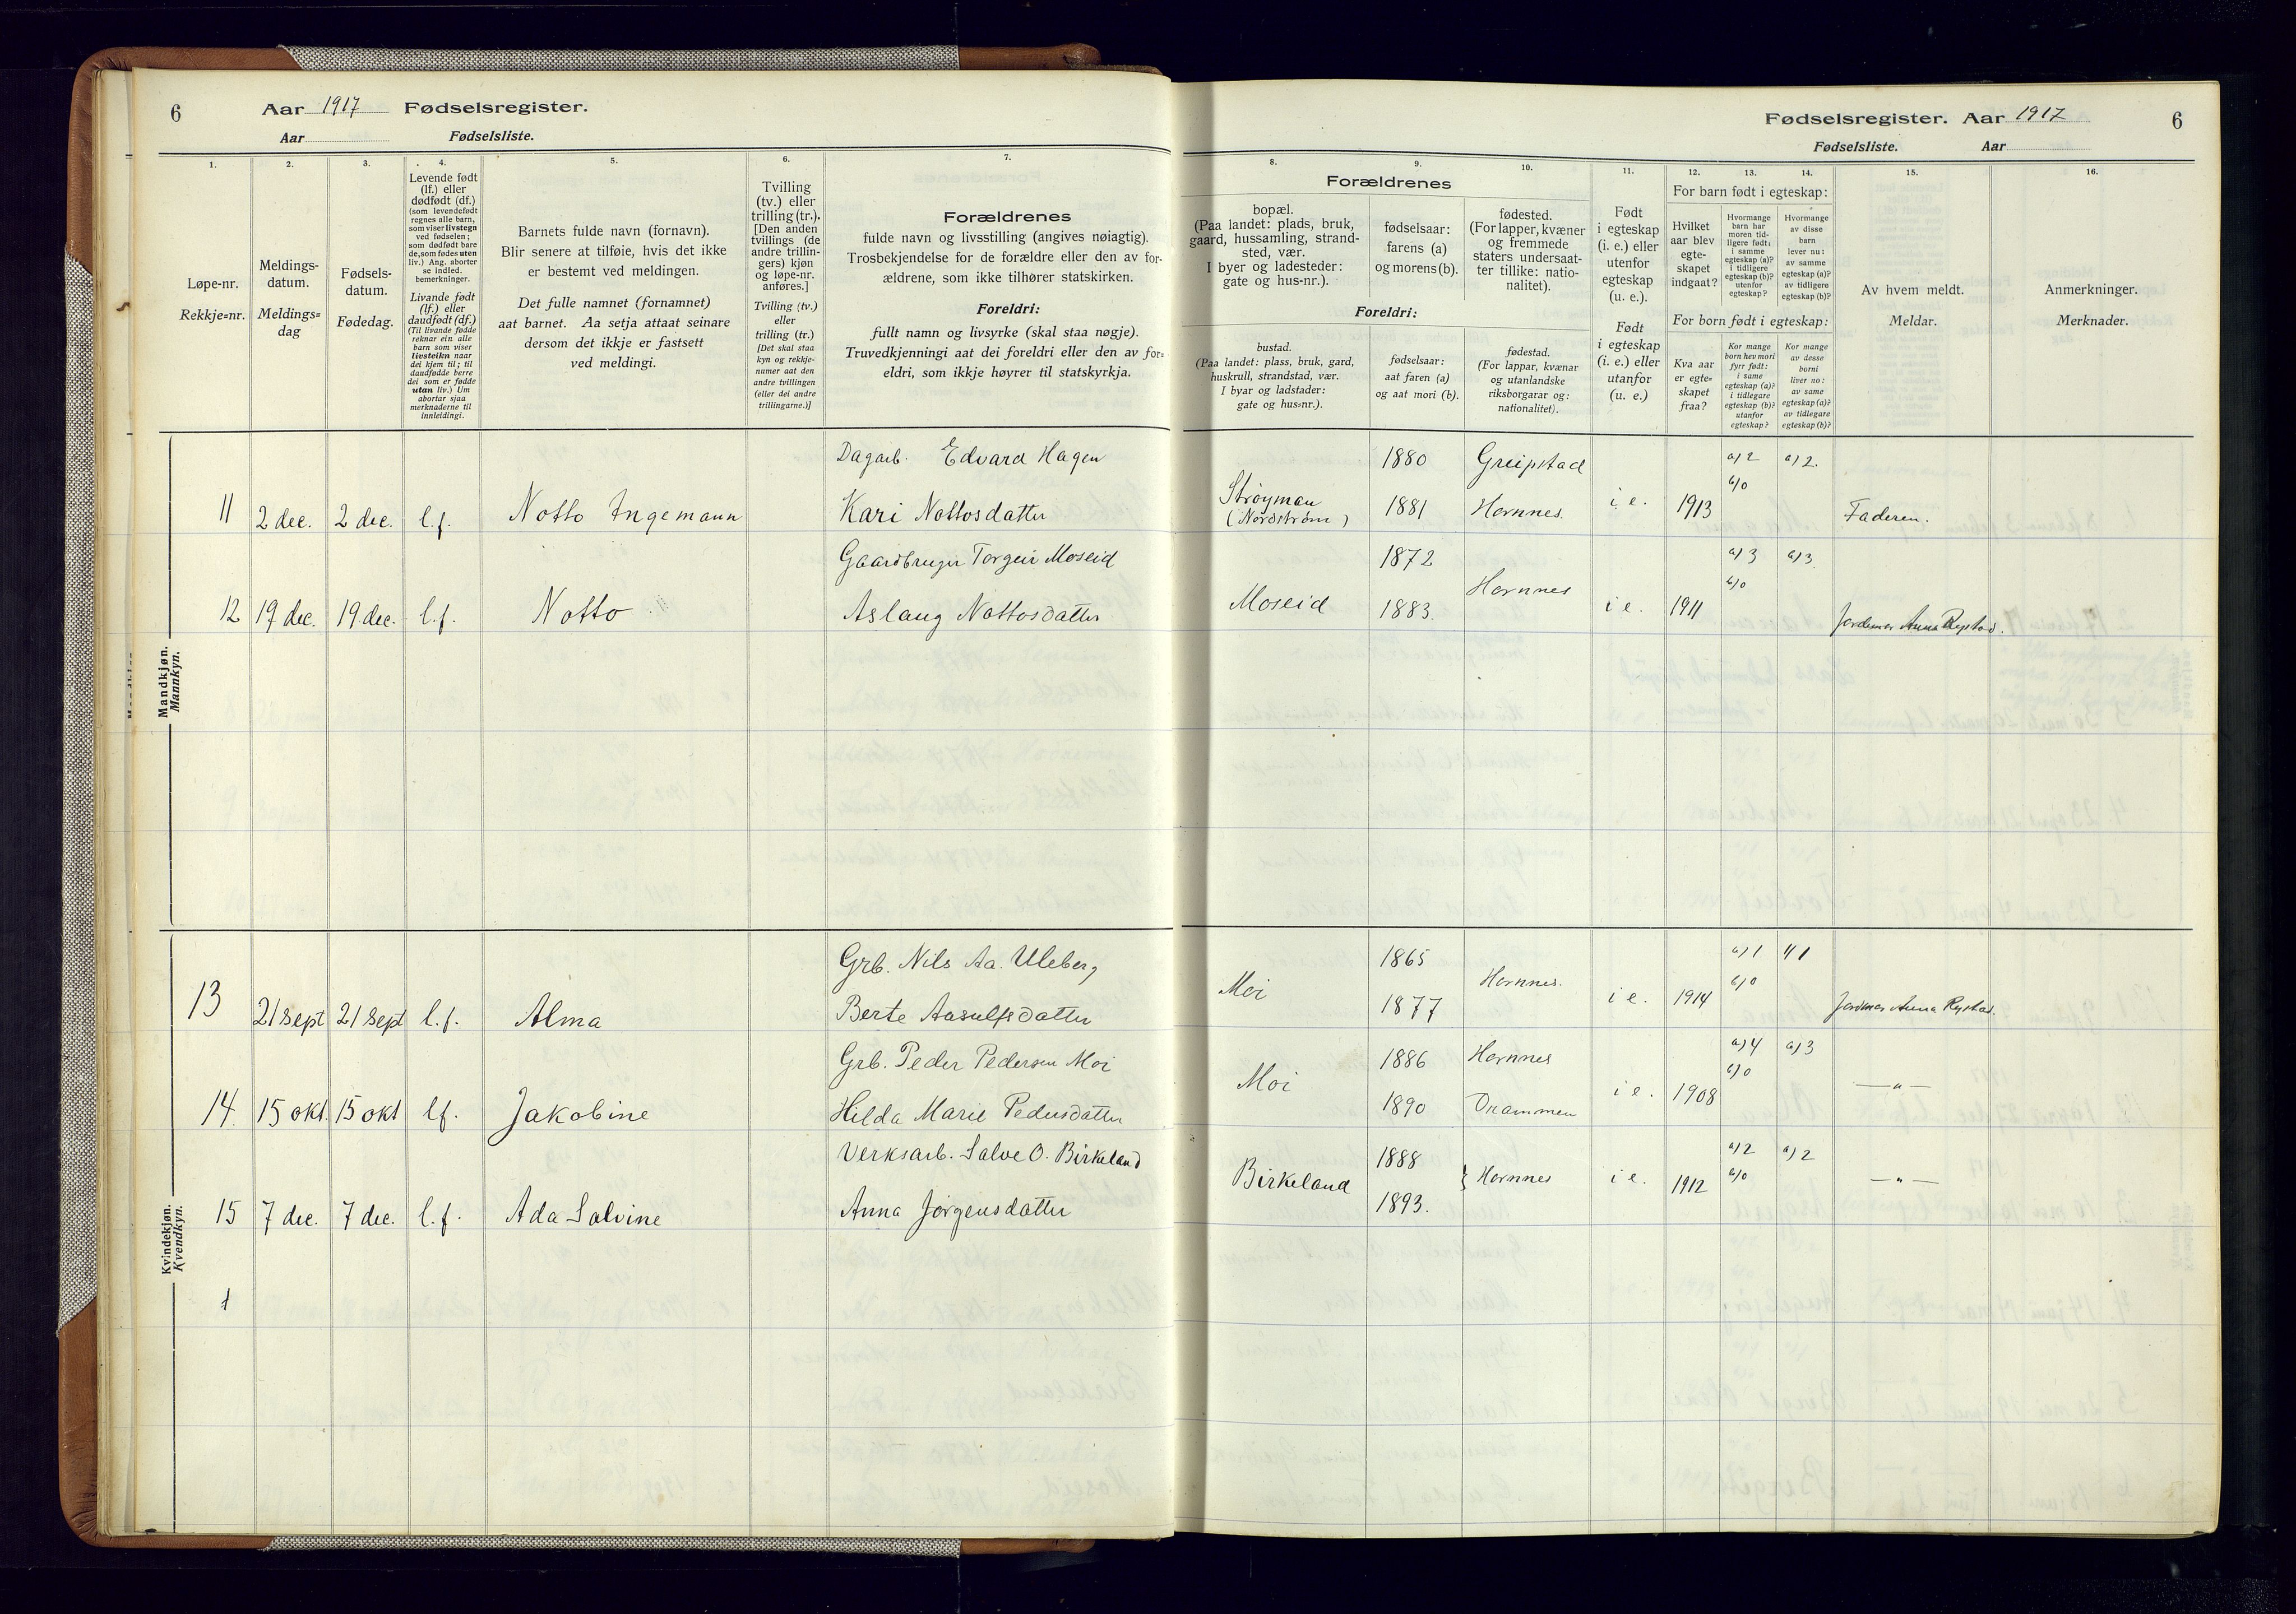 6 Aar 1917 Fødselsregister.
Aar Fødselsliste.
1.
Løpe-nr.
Rekkje=nr.
2.
Meldings-
datum.
Meldings=
dag
3.
Fødsels-
datum.
Fødedag.
4.
Levende født
(lf.) eller
dødfødt (df.)
(som levendefødt
regnes alle barn,
som viser livstegn
ved fødselen;
som dødfødt bare
de, som fødes uten
liv.) Ang. aborter
se indled.
bemerkninger.
Livande født
(lf.) eller
daudfødt (df.)
(Til livande fødde
reknar ein alle
barn som viser
livsteikn naar
dei kjem til; til
daudfødde berre
dei som er fødde
utan liv.) Um
abortar sjaa
merknaderne til
innleidingi.
5.
Barnets fulde navn (fornavn).
Blir senere at tilføie, hvis det ikke
er bestemt ved meldingen.
Det fulle namnet (fornamnet)
aat barnet. Aa setja attaat seinare
dersom det ikkje er fastsett
ved meldingi.
6.
Tvilling
(tv.) eller
trilling (tr.).
[Den anden
tvillings (de
andre trillin-
gers) kjøn
og løpe-nr.
anføres.]
Tvilling (tv.)
eller
trilling (tr.)
[Det skal staa
kyn og rekkje-
numer aat den
andre tvillingen
(eller dei andre
trillingarne.)]
7.
Forældrenes
fulde navn og livsstilling (angives nøiagtig).
Trosbekjendelse for de forældre eller den av for-
ældrene, som ikke tilhører statskirken.
Foreldri:
fullt namn og livsyrke (skal staa nøgje).
Truvedkjenningi aat dei foreldri eller den av for=
eldri, som ikkje høyrer til statskyrkja.
Mandkjøn.
Mannkyn.
Dagarb. Edvard Hagen
11 2 dec. 2 dec. l.f. Notto Ingemann Kari Nottosdatter
Gaardbruger Torgeir Moseid
12 19 dec. 19 dec. l.f. Notto Aslaug Nottosdatter
Kvindekjøn.
Kvendkyn.
Grb. Nils Aa. Uleberg
13 21 sept 21 sept l.f. Alma Berte Aasulfsdatter
Grb. Peder Pedersen Moi
14. 15 okt. 15 okt l.f. Jakobine Hilda Marie Pedersdatter
Verksarb. Salve O. Birkeland
15 7 dec. 7 dec. l.f. Ada Salvine Anna Jörgensdatter
Fødselsregister. Aar 1917 6
Fødselsliste. Aar
Forældrenes
8.
bopæl.
(Paa landet: plads, bruk,
gaard, hussamling, strand-
sted, vær.
I byer og ladesteder:
gate og hus-nr.).
9.
fødselsaar:
farens (a)
og morens (b).
10.
fødested.
(For lapper, kvæner
og fremmede
staters undersaat-
ter tillike: natio-
nalitet).
Foreldri:
bustad.
(Paa landet: plass, bruk, gard,
huskrull, strandstad, vær.
I byar og ladstader:
gate og hus=nr.).
fødselsaar:
aat faren (a)
og aat mori (b).
fødestad.
(For lappar, kvænar
og utanlandske
riksborgarar og:
nationalitet).
11.
Født
i egteskap
(i. e.) eller
utenfor
egteskap
(u. e.).
Født
i egteskap
(i. e.) eller
utanfor
(u. e.)
12. 13. 14.
For barn født i egteskap:
Hvilket
aar blev
egte-
skapet
indgaat?
Hvormange
barn har
moren tid-
ligere født:
i samme
egteskap (a)?
i tidligere
egteskap (b)?
utenfor
egteskap?
Hvormange
av disse
barn
lever nu:
av samme
egteskap (a)?
av tidligere
egteskap (b)?
For born født i egteskap:
Kva aar
er egte=
skapet
fraa?
Kor mange
born hev mori
fyrr født:
i same
egteskap (a)?
i tidlegare
egteskap (b)?
utanfor
egteskap?
Kor mange
av desse
borni
liver no:
av same
egteskap (a)?
av tidlegare
egteskap (b)?
15.
Av hvem meldt.
Meldar.
16.
Anmerkninger.
Merknader.
1880 Greipstad a) 2 a) 2.
Strøyman 1881 Hornnes. i. e. 1913 b) 0 Faderen.
(Nordstrøm)
1872 a) 3 a) 3
Moseid 1883. Hornnes i e. 1911 b) 0 Jordemor Anna Rystad.
1865 a) 1 1
Moi 1877 Hornnes. i e. 1914 b) 0 Jordmor Anna Rystad.
1886 Hornnes a) 4 a) 3
Moi 1890 Drammen i e. 1908 b) 0 —"—
1888 a) 2 a) 2
Birkeland 1893. } Hornnes i e. 1912 b) 0 —"—